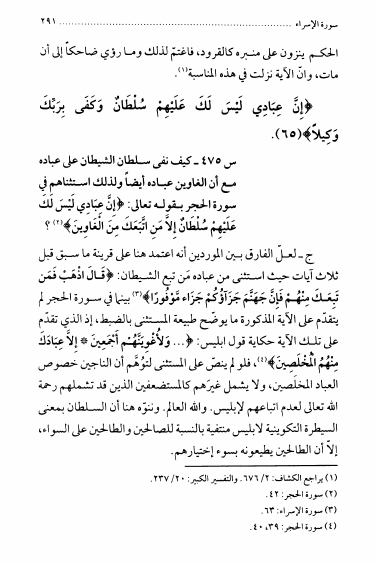 سورة الإسراء ........................................ ٢٩١
الحكم ينزون على منبره كالقرود، فاغتمّ لذلك وما رؤي ضاحكاً إلى أن
مات، وانّ الآية نزلت في هذه المناسبة(١).
﴿إِنَّ عِبَادِي لَيْسَ لَكَ عَلَيْهِمْ سُلْطَانٌ وَكَفَى بِرَبِّكَ
وَكِيلاً﴾(٦٥).
س ٤٧٥ ـ كيف نفى سلطان الشيطان على عباده
مع أن الغاوين عباده أيضاً ولذلك استثناهم في
سورة الحجر بقوله تعالى: ﴿إِنَّ عِبَادِي لَيْسَ لَكَ
عَلَيْهِمْ سُلْطَانٌ إِلاَّ مَنِ اتَّبَعَكَ مِنَ الْغَاوِينَ﴾(٢)؟
ج ـ لعلّ الفارق بين الموردين أنه اعتمد هنا على قرينة ما سبق قبل
ثلاث آيات حيث استثنى من عباده مَن تبع الشيطان: ﴿قَالَ اذْهَبْ فَمَن
تَبِعَكَ مِنْهُمْ فَإِنَّ جَهَنَّمَ جَزَآؤُكُمْ جَزَاء مَّوْفُورًا﴾(٣) بينما في سورة الحجر لم
يتقدّم على الآية المذكورة ما يوضّح طبيعة المستثنى بالضبط، إذ الذي تقدّم
على تلك الآية حكاية قول ابليس: ﴿... وَلأُغْوِيَنَّهُمْ أَجْمَعِينَ * إِلاَّ عِبَادَكَ
مِنْهُمُ الْمُخْلَصِينَ﴾(٤)، فلو لم ينصّ على المستثنى لتُوُهِّم أن الناجين خصوص
العباد المخلَصين، ولا يشمل غيرَهم كالمستضعفين الذين قد تشملهم رحمة
الله تعالى لعدم اتباعهم لإبليس. والله العالم. وننوّه هنا أن السلطان بمعنى
السيطرة التكوينية لابليس منتفية بالنسبة للصالحين والطالحين على السواء،
إلاّ أن الطالحين يطيعونه بسوء إختيارهم.
(١) يراجع الكشاف: ٢/ ٦٧٦. والتفسير الكبير: ٢٠/ ٢٣٧.
(٢) سورة الحجر: ٤٢.
(٣) سورة الإسراء: ٦٣.
(٤) سورة الحجر: ٣٩، ٤٠.